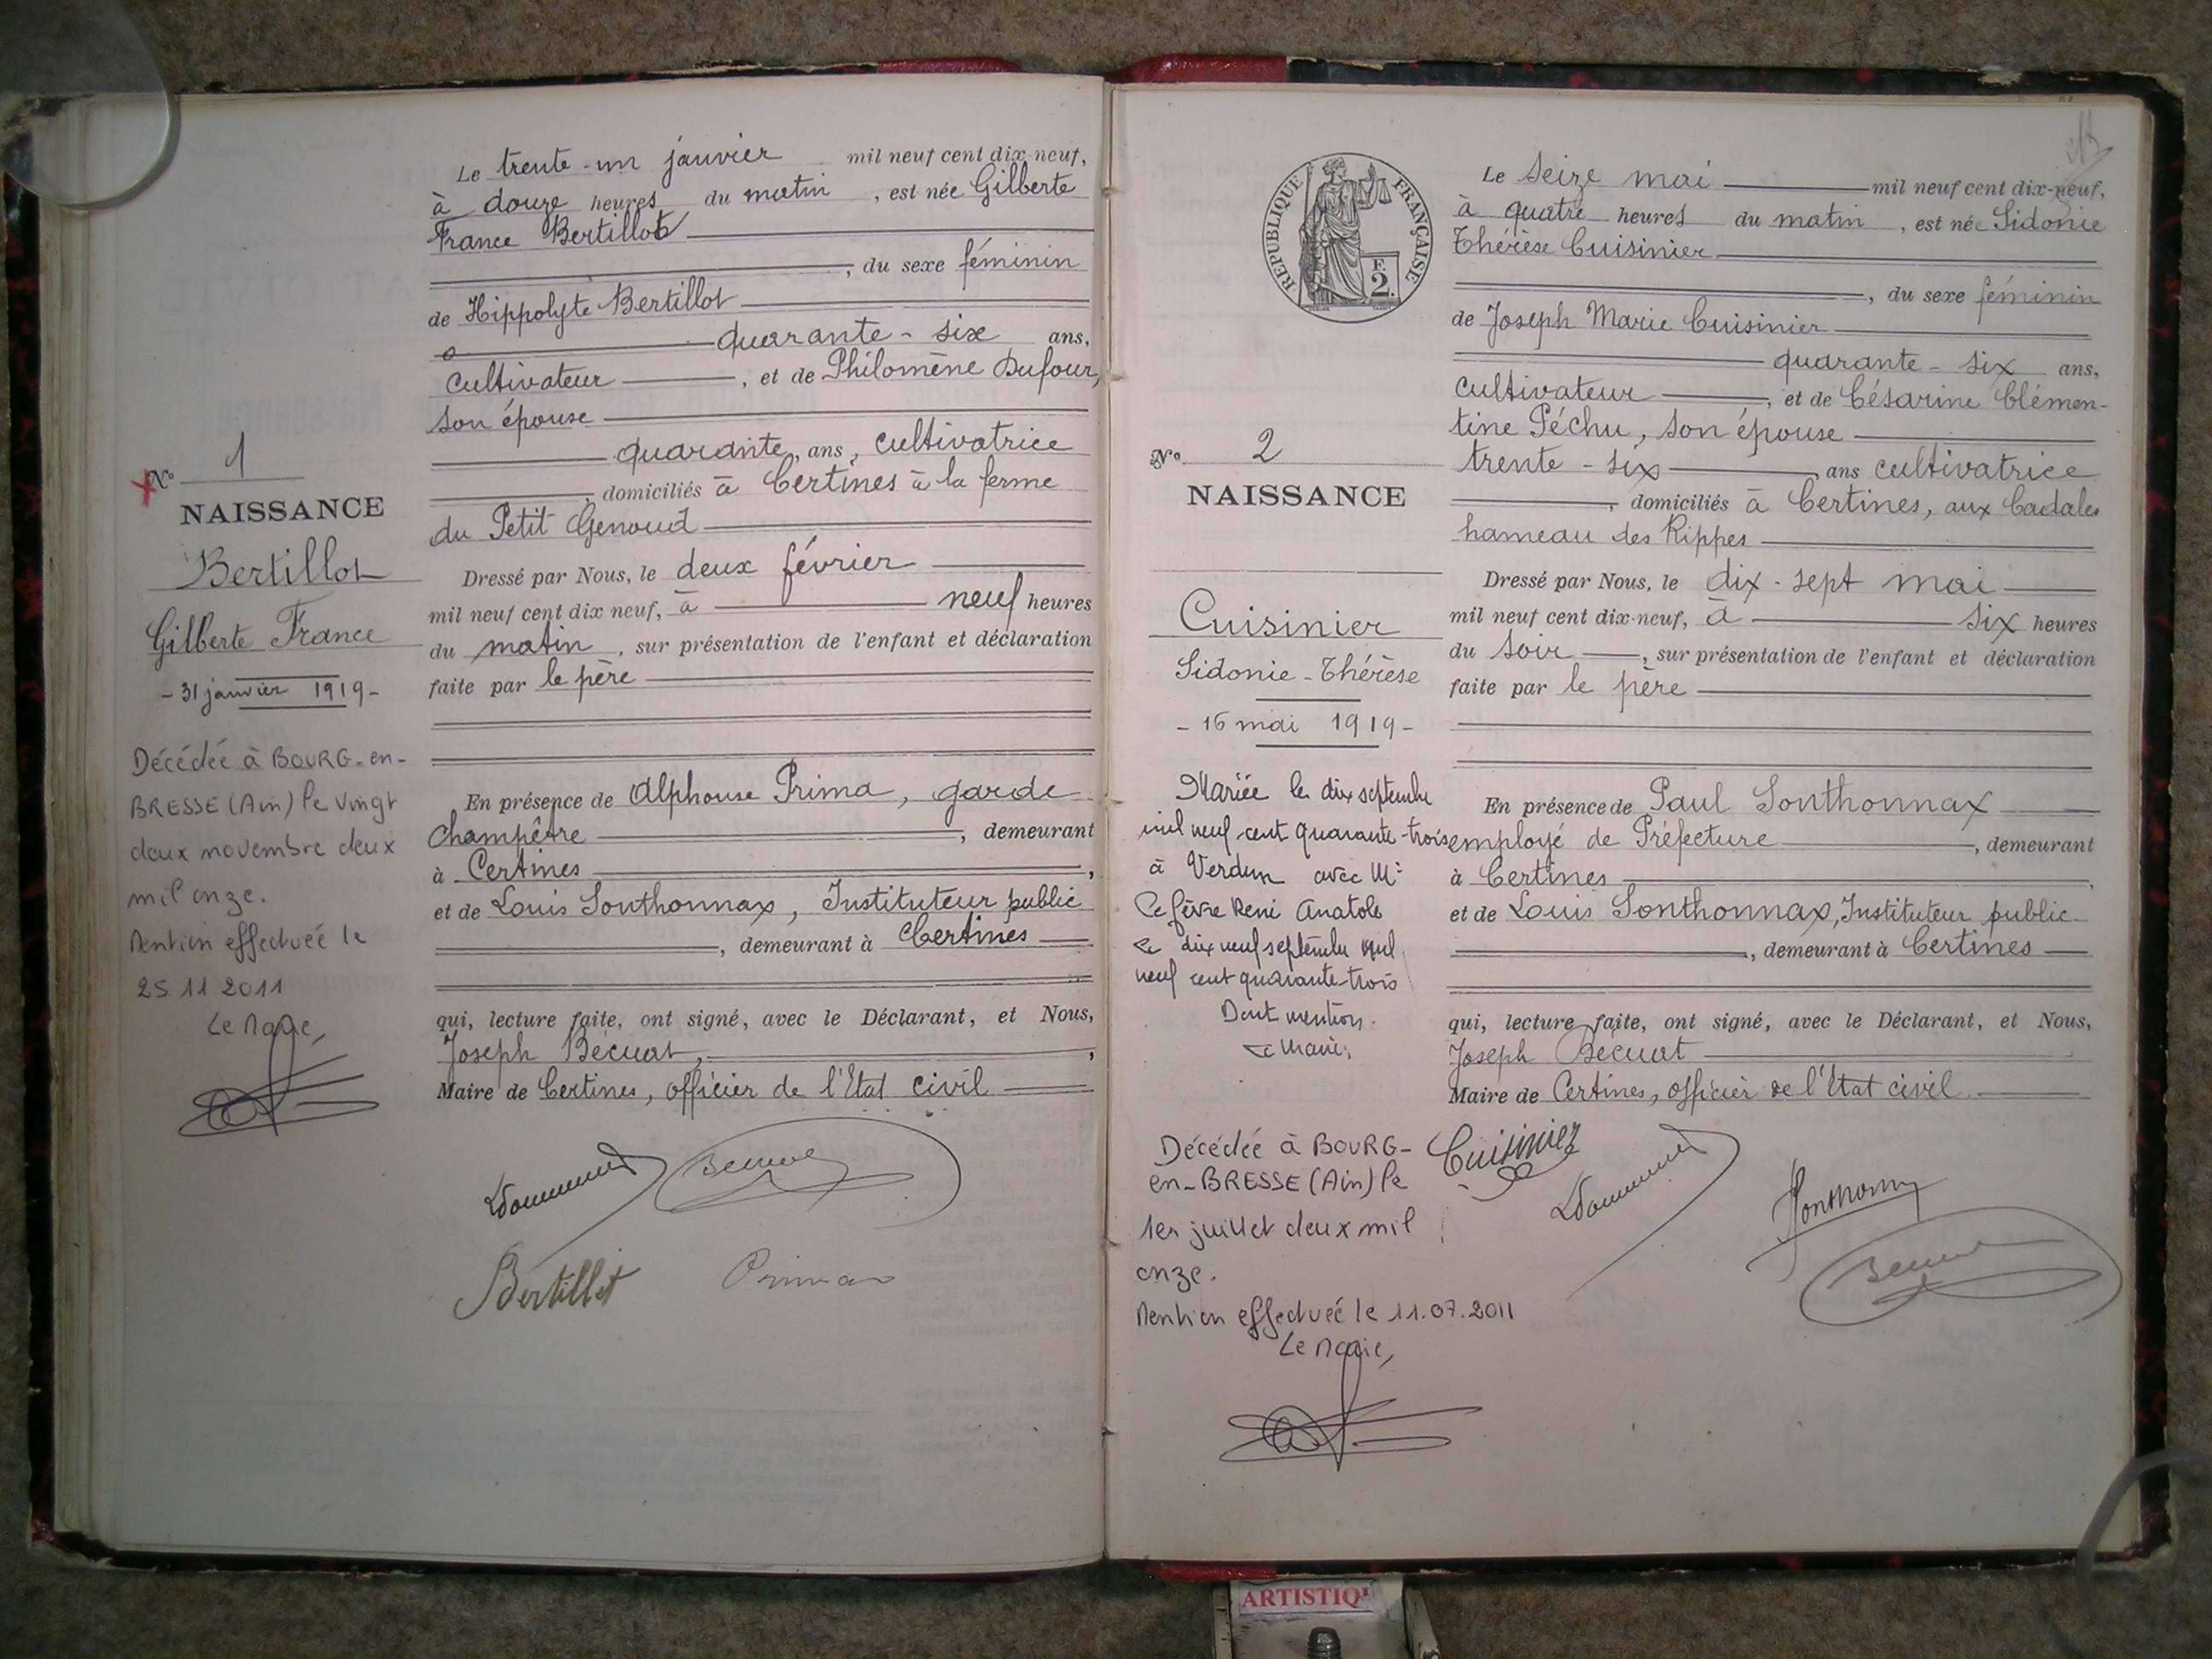 Le trente-un janvier mil neuf cent dix neuf,
à douze heures du matin, est née Gilberte
France Bertillot
, du sexe féminin
de Hippolyte Bertillot
quarante-six ans,
cultivateur, et de Philomène Dufour,
son épouse
quarante, ans, cultivatrice
, domiciliés à Certines à la ferme
du Petit Genoud
Dressé par Nous, le deux février
mil neuf cent dix neuf, à neuf heures
du matin, sur présentation de l'enfant et déclaration
faite par le père
En présence de Alphonse Prima, garde
champêtre, demeurant
à Certines,
et de Louis Sonthonnax, Instituteur public
, demeurant à Certines
qui, lecture faite, ont signé, avec le Déclarant, et Nous,
Joseph Bécuat,
Maire de Certines, officier de l'Etat civil
Bertillot
Prima
N° 1
NAISSANCE
Bertillot
Gilberte France
- 31 janvier 1919 -
Décédée à BOURG-en-
BRESSE (Ain) le vingt
deux novembre deux
mil onze.
Mention effectuée le
25 11 2011
Le Maire,
RÉPUBLIQUE FRANÇAISE
F.
2.
Le seize mai mil neuf cent dix-neuf,
à quatre heures du matin, est née Sidonie
Thérèse Cuisinier
, du sexe féminin
de Joseph Marie Cuisinier
quarante-six ans,
cultivateur, et de Césarine Clémen-
tine Péchu, son épouse
trente-six, ans cultivatrice
, domiciliés à Certines, aux Cadales
hameau des Rippes
Dressé par Nous, le dix-sept mai
mil neuf cent dix-neuf, à six heures
du soir, sur présentation de l'enfant et déclaration
faite par le père
En présence de Paul Sonthonnax
employé de Préfecture, demeurant
à Certines,
et de Louis Sonthonnax, Instituteur public
, demeurant à Certines
qui, lecture faite, ont signé, avec le Déclarant, et Nous,
Joseph Bécuat
Maire de Certines, officier de l'Etat civil
Cuisinier
N° 2
NAISSANCE
Cuisinier
Sidonie-Thérèse
- 16 mai 1919 -
Mariée le dix septembre
mil neuf cent quarante-trois
à Verdun avec Mr
Lefèvre René Anatole
Le dix neuf septembre mil
neuf cent quarante-trois
Dont mention.
Le Maire,
Décédée à BOURG-
en-BRESSE (Ain) le
1er juillet deux mil
onze.
Mention effectuée le 11.07.2011
Le Maire,
ARTISTIQ